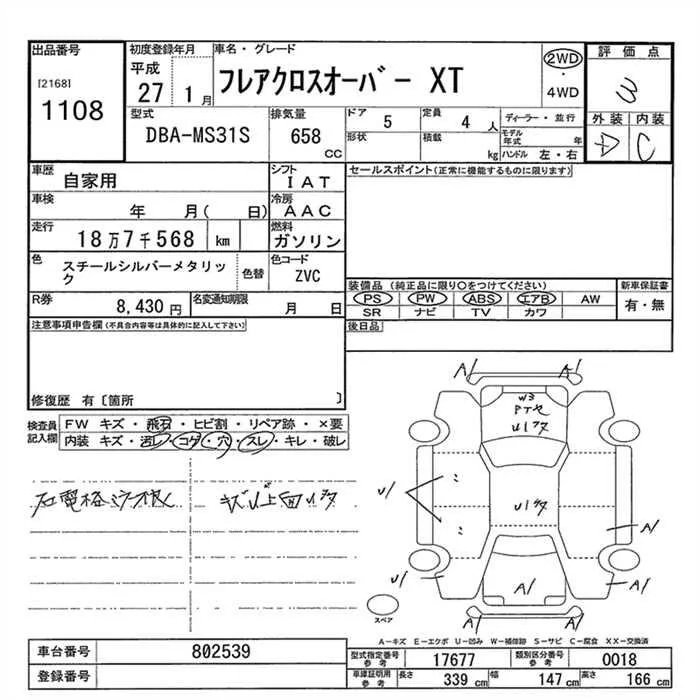 出品番号 初度登録年月 車名・グレード 評価点
[2168] 平成 フレアクロスオーバー XT 2WD
1108 27 1月 ・ 3
4WD
型式 排気量 ドア 5 定員 4 人 ディーラー・並行 外装 内装
DBA-MS31S 658 CC 形状 積載 kg モデル年式 年 C
ハンドル 左・右
車歴 自家用 シフト IAT セールスポイント(正常に機能するものに限ります)
車検 年 月( 日) 冷房 AAC
走行 18万7千568 km 燃料 ガソリン
色 スチールシルバーメタリック 色替 色コード ZVC
装備品(純正品に限り○をつけてください) 新車保証書
R券 8,430円 名変通知期限 月 日 PS PW ABS エアB AW 有・無
SR ナビ TV カワ
注意事項申告欄(不具合内容等は具体的に記入して下さい) 後日品
修復歴 有〔箇所 〕
検査員記入欄 FW キズ・飛石・ヒビ割・リペア跡・×要
内装 キズ・汚レ・コゲ・穴・スレ・キレ・破レ
A1 A1
W3
U1
U1
U1
A1
U1 A1 A1
A1 A1
スペア
A-キズ E-エクボ U-凹み W-補修跡 S-サビ C-腐食 XX-交換済
車台番号 802539 型式指定番号 参考 17677 類別区分番号 参考 0018
登録番号 車庫証明用 参考 長さ 339 cm 幅 147 cm 高さ 166 cm